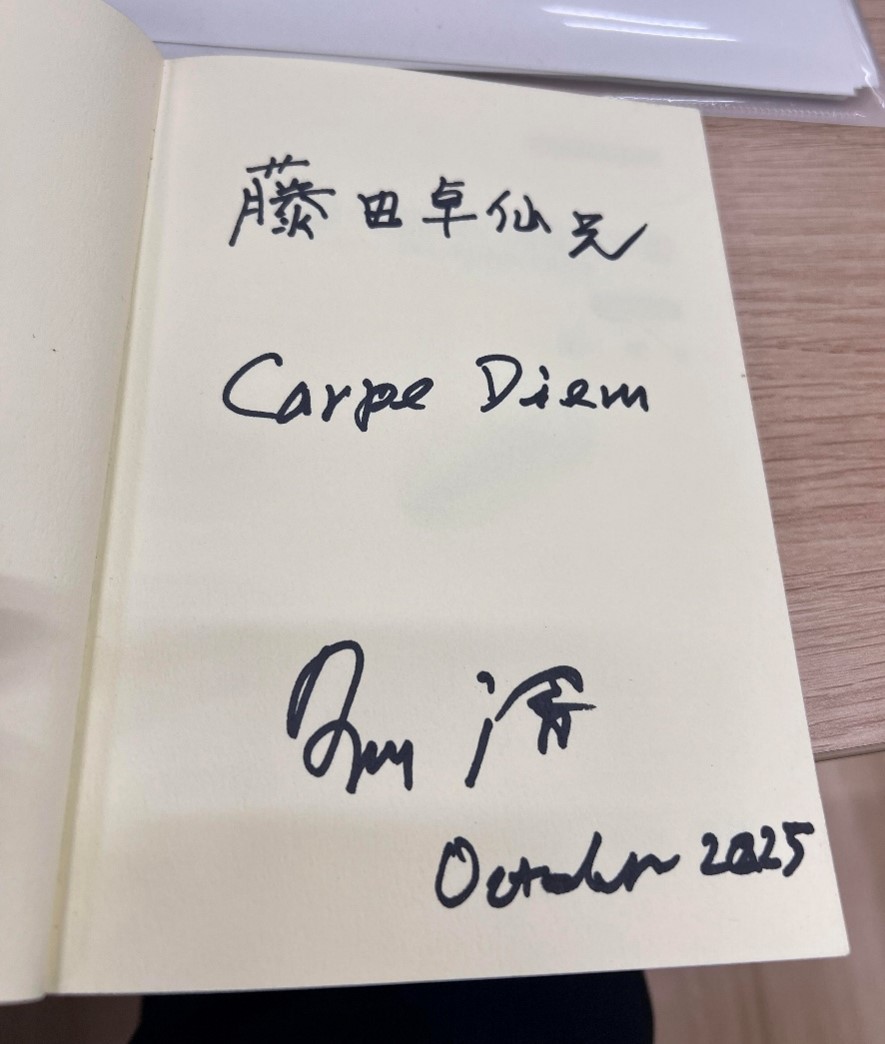 藤田卓仙兄
Carpe Diem
October 2025